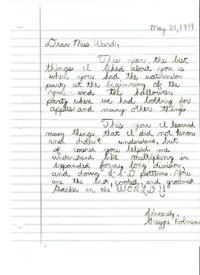 May 24, 1999
Dear Miss Ward,
This year the best
things I liked about you is
when you had the watermelon
party at the beginning of the
year and the halloween
party where we had bobbing for
apples and many other things
This year I learned
many things that I did not know
and didn't understand, but
of course you helped me
understand like multiplying in
expanded form, long division,
and doing 2-5-D patterns. You
are the best, coolest, and grooviest
teacher in the WORLD!!
Sincerely,
Robinson